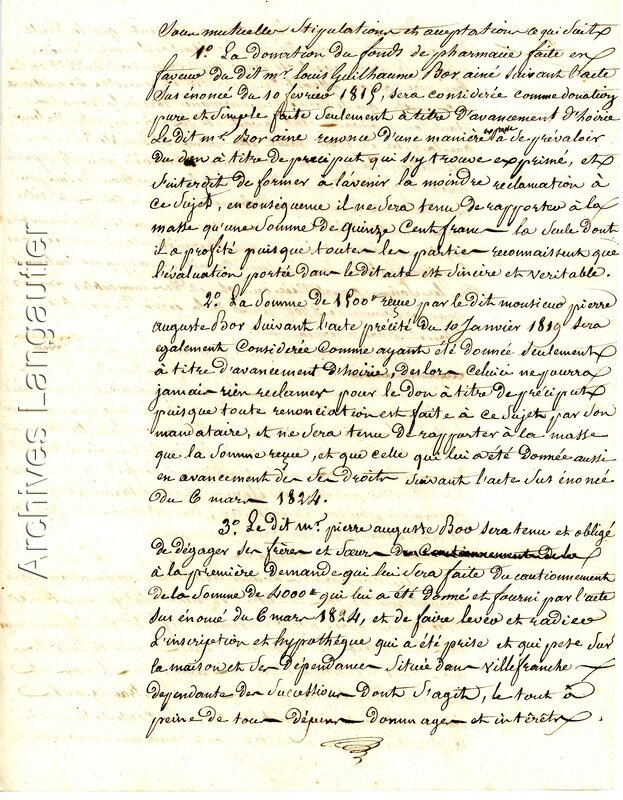 Sous mutuelles Stipulations et acceptations ce qui Suit
1.° La donation du fonds de pharmacie faite en
faveur du dit mr. Louis Guilhaume Bor ainé suivant l'acte
Sus énoncé du 10 fevrier 1815, sera considérée comme donation
pure et Simple faite seulement à titre d'avancement d'hoirie
Le dit mr. Bor aine renonce d'une manière expresse à se prévaloir
du don à titre de preciput qui s'y trouve exprimé, et
s'interdit de former à l'avenir la moindre reclamation à
ce Sujet, en conséquence il ne Sera tenu de rapporter à la
masse qu'une Somme de Quinze Cent francs la seule dont
il a profité puisque toutes les parties reconnaissent que
l'évaluation portée dans le dit acte est sincère et veritable.
2.° La Somme de 1500# reçue par le dit monsieur pierre
auguste Bor suivant l'acte précité du 10 Janvier 1819 sera
également Considerée Comme ayant été donnée seulement
à titre d'avancement d'hoirie, des lors celuici ne pourra
jamais rien reclamer pour le don à titre de préciput
puisque toute renonciation est faite à ce Sujet par son
mandataire, et ne sera tenu de rapporter à la masse
que la somme reçue, et que celle qui lui a été donnée aussi
en avancement de ses droits suivant l'acte sus énoncé
du 6 mars 1824.
3.° Le dit mr. pierre auguste Bor sera tenu et obligé
de dégager ses frères et sœurs du Cautionnement de la
à la première demande qui lui sera faite du cautionnement
de la somme de 4000# qui lui a été donné et fourni par l'acte
sus énoncé du 6 mars 1824, et de faire lever et radier
L'inscription et hypothèque qui a été prise et qui pese sur
la maison et ses dépendances située dans villefranche
dependante des successions dont s'agit, le tout à
peine de tous dépens dommages et intérêts.
Archives Langautier